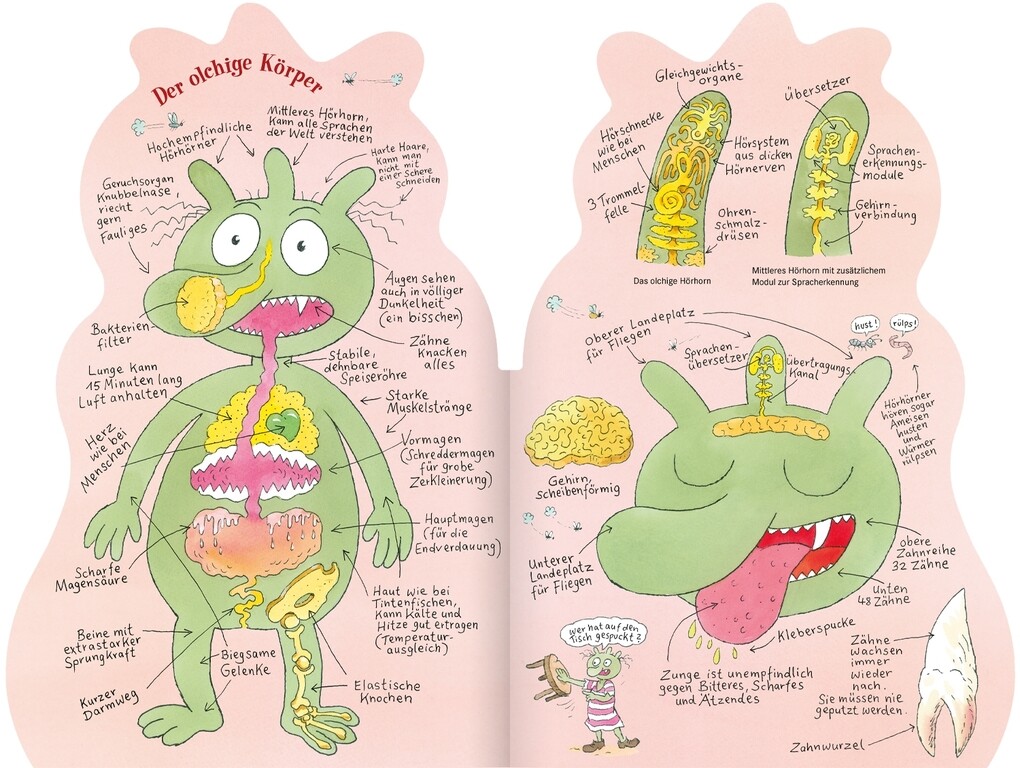 Der olchige Körper
Hochempfindliche
Hörhörner
Mittleres Hörhorn,
Kann alle Sprachen
der Welt verstehen
Harte Haare,
Kann man
nicht mit
einer Schere
schneiden
Geruchsorgan
Knubbelnase,
riecht
gern
Fauliges
Augen sehen
auch in völliger
Dunkelheit
(ein bisschen)
Bakterien-
filter
Zähne
Knacken
alles
Stabile,
dehnbare
Speiseröhre
Lunge kann
15 Minuten lang
Luft anhalten
Starke
Muskelstränge
Herz
wie bei
Menschen
Vormagen
(Schreddermagen
für grobe
Zerkleinerung)
Hauptmagen
(für die
Endverdauung)
Scharfe
Magensäure
Haut wie bei
Tintenfischen,
Kann Kälte und
Hitze gut ertragen
(Temperatur-
ausgleich)
Beine mit
extrastarker
Sprungkraft
Biegsame
Gelenke
Kurzer
Darmweg
Elastische
Knochen
Gleichgewichts-
organe
Hörschnecke
wie bei
Menschen
Hörsystem
aus dicken
Hörnerven
3 Trommel-
felle
Ohren-
schmalz-
drüsen
Das olchige Hörhorn
Übersetzer
Sprachen-
erkennungs-
module
Gehirn-
verbindung
Mittleres Hörhorn mit zusätzlichem
Modul zur Spracherkennung
Oberer Landeplatz
für Fliegen
hust!
rülps!
Sprachen-
übersetzer
Übertragungs-
Kanal
Hörhörner
hören sogar
Ameisen
husten
und
Würmer
rülpsen
Gehirn,
scheibenförmig
Unterer
Landeplatz
für Fliegen
obere
Zahnreihe
32 Zähne
Unten
48 Zähne
Kleberspucke
Wer hat auf den
Tisch gespuckt?
Zunge ist unempfindlich
gegen Bitteres, Scharfes
und Ätzendes
Zähne
wachsen
immer
wieder
nach.
Sie müssen nie
geputzt werden.
Zahnwurzel